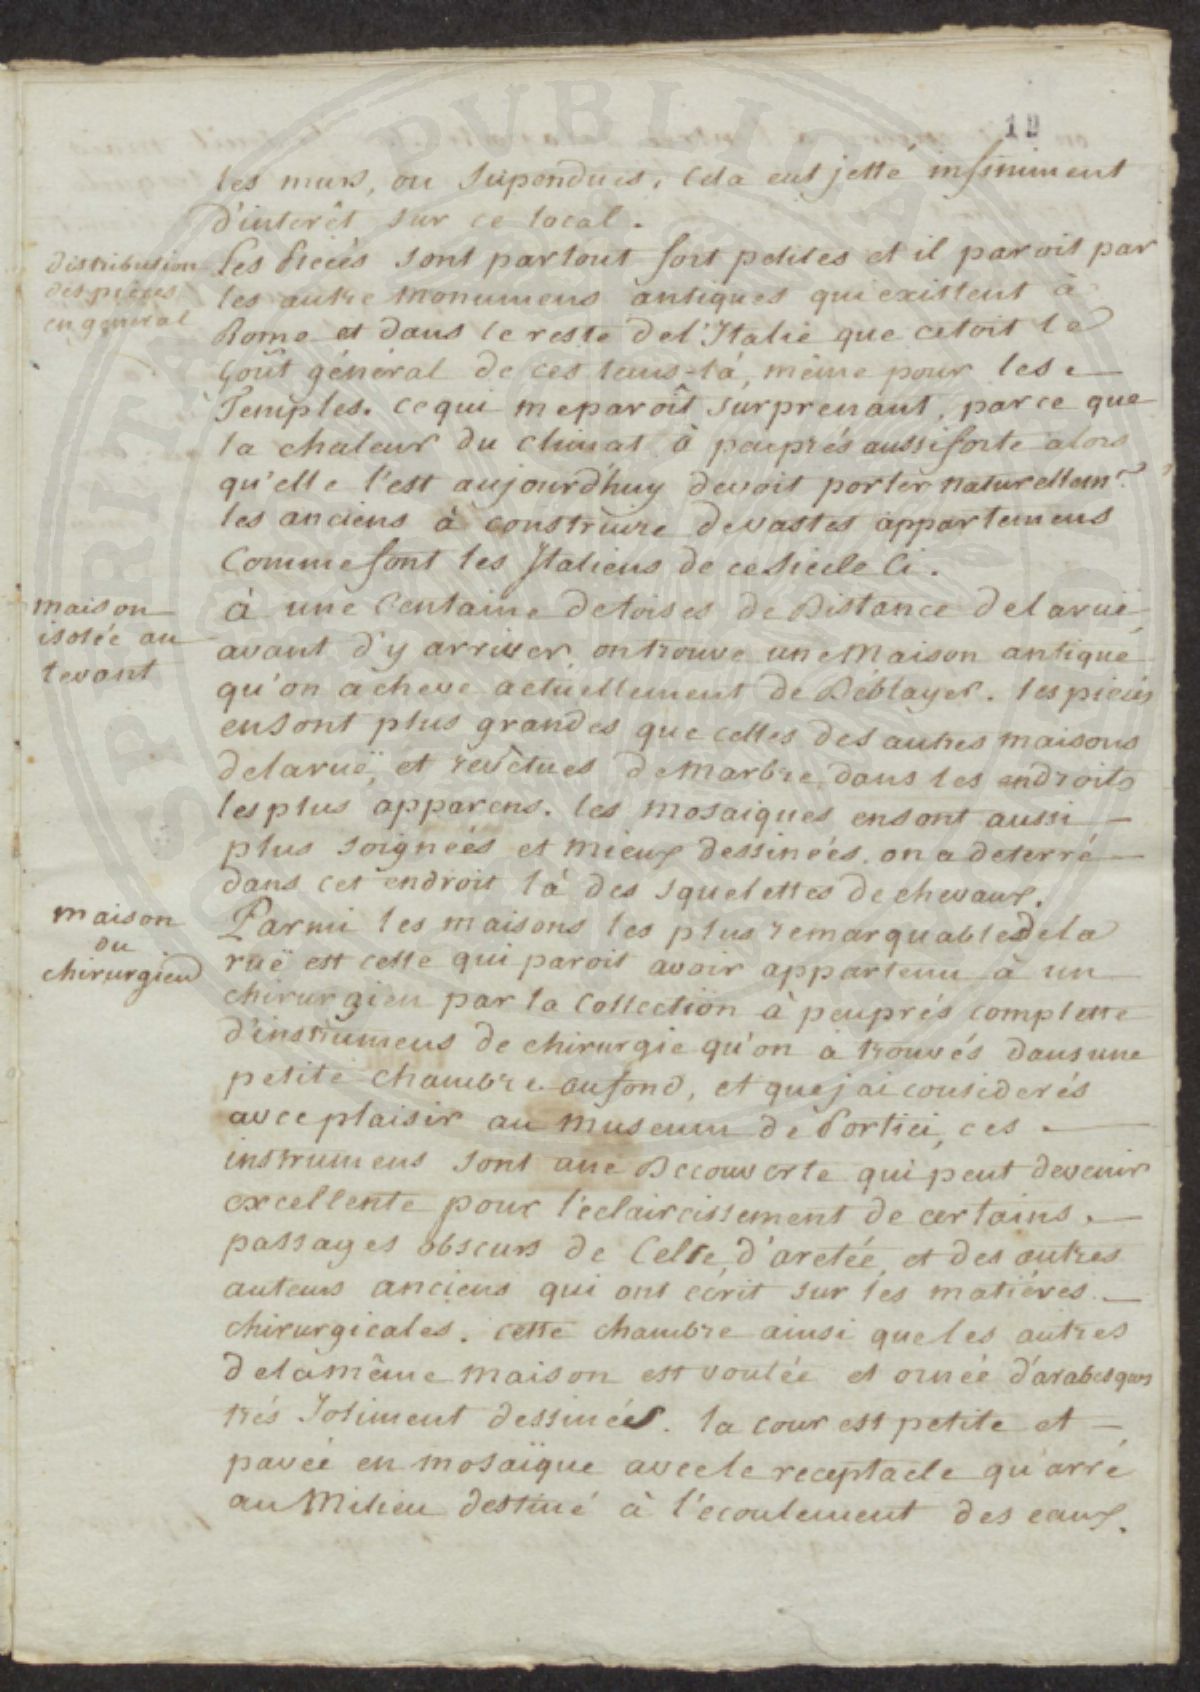 12
les murs, ou supendues, cela eut jetté infiniment
d'interêt sur ce local.
distribution
des pieces
en général
les Piéces sont partout fort petites et il paroit par
les autre monumens antiques qui existent à
Rome et dans le reste de l'Italie que cetoit le
Goût général de ces tems-là, même pour les
Temples. ce qui me paroît surprenant, parce que
la chaleur du climat à peuprés aussi forte alors
qu'elle l'est aujourd'huy devoit porter naturellemt.
les anciens à construire de vastes appartemens
Comme font les Italiens de ce siecle Ci.
maison
isolée au
levant
à une Centaine de toises de Distance de la ruë
avant d'y arriver, on trouve une Maison antique
qu'on acheve actuellement de Déblayer. les pieces
en sont plus grandes que celles des autres maisons
de la ruë, et revêtues de Marbre dans les endroits
les plus apparens. les mosaiques en sont aussi
plus soignéés et mieux dessinées. on a deterré
dans cet endroit là des squelettes de chevaux.
maison
du
chirurgien
Parmi les maisons les plus remarquables de la
ruë est celle qui paroit avoir appartenu à un
chirurgien par la Collection à peuprés complette
d'instrumens de chirurgie qu'on à trouvés dans une
petite chambre au fond, et que j'ai considerés
avec plaisir au Museum de Portici, ces
instrumens sont une Decouverte qui peut devenir
excellente pour l'eclaircissement de certains
passages obscurs de Celse, d'aretée, et des autres
auteurs anciens qui ont écrit sur les matiéres
chirurgicales. cette chambre ainsi que les autres
de la même maison est voutée et ornée d'arabesques
trés Joliment dessinées. la cour est petite et
pavée en mosaïque avec le receptacle qu'arré
au Milieu destiné à l'ecoulement des eaux.